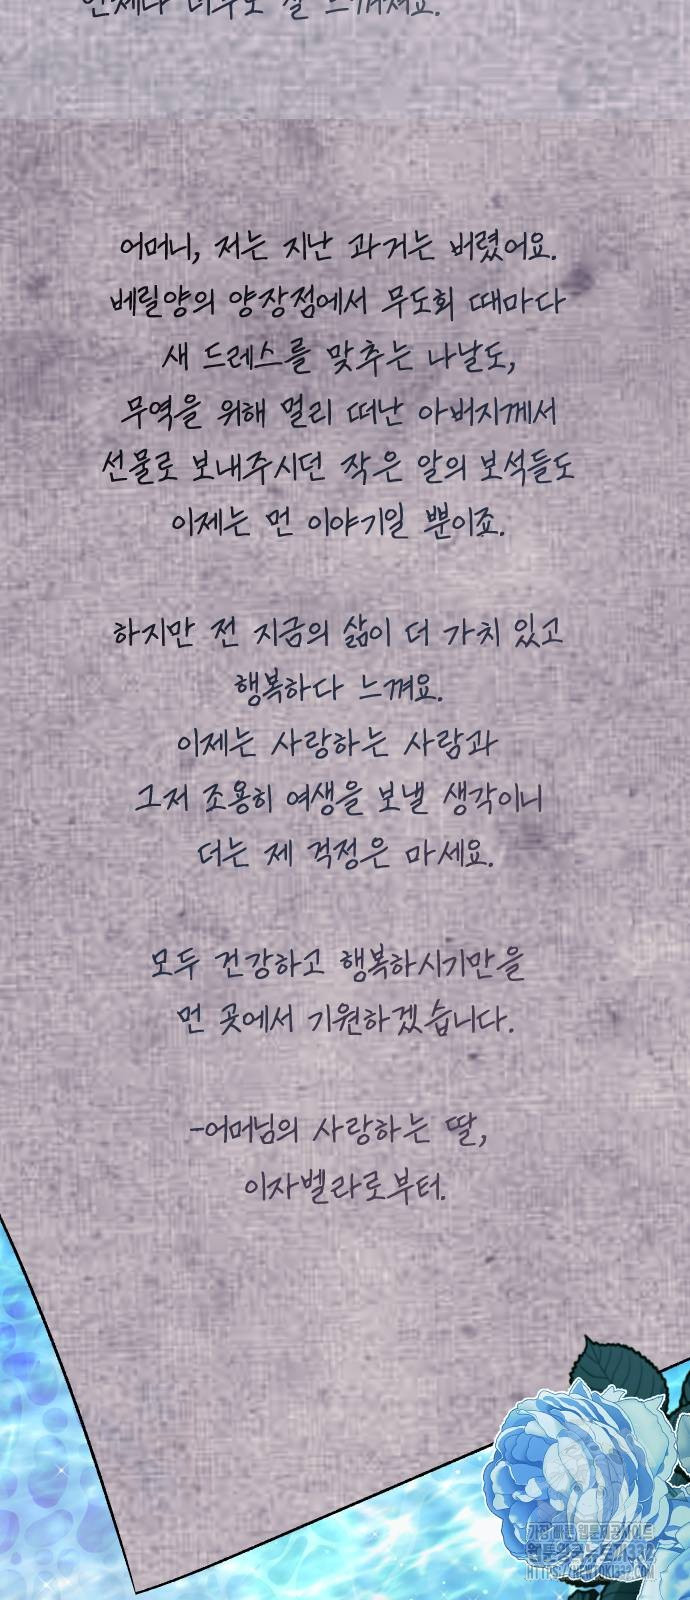 언제나 너무도 잘 느껴져요.
어머니, 저는 지난 과거는 버렸어요.
베릴양의 양장점에서 무도회 때마다
새 드레스를 맞추는 나날도,
무역을 위해 멀리 떠난 아버지께서
선물로 보내주시던 작은 알의 보석들도
이제는 먼 이야기일 뿐이죠.
하지만 전 지금의 삶이 더 가치 있고
행복하다 느껴요.
이제는 사랑하는 사람과
그저 조용히 여생을 보낼 생각이니
더는 제 걱정은 마세요.
모두 건강하고 행복하시기만을
먼 곳에서 기원하겠습니다.
-어머님의 사랑하는 딸,
이자벨라로부터.
가장 빠른 웹툰제공사이트
웹툰왕국뉴토끼332
HTTPS://NEWTOKI332.COM